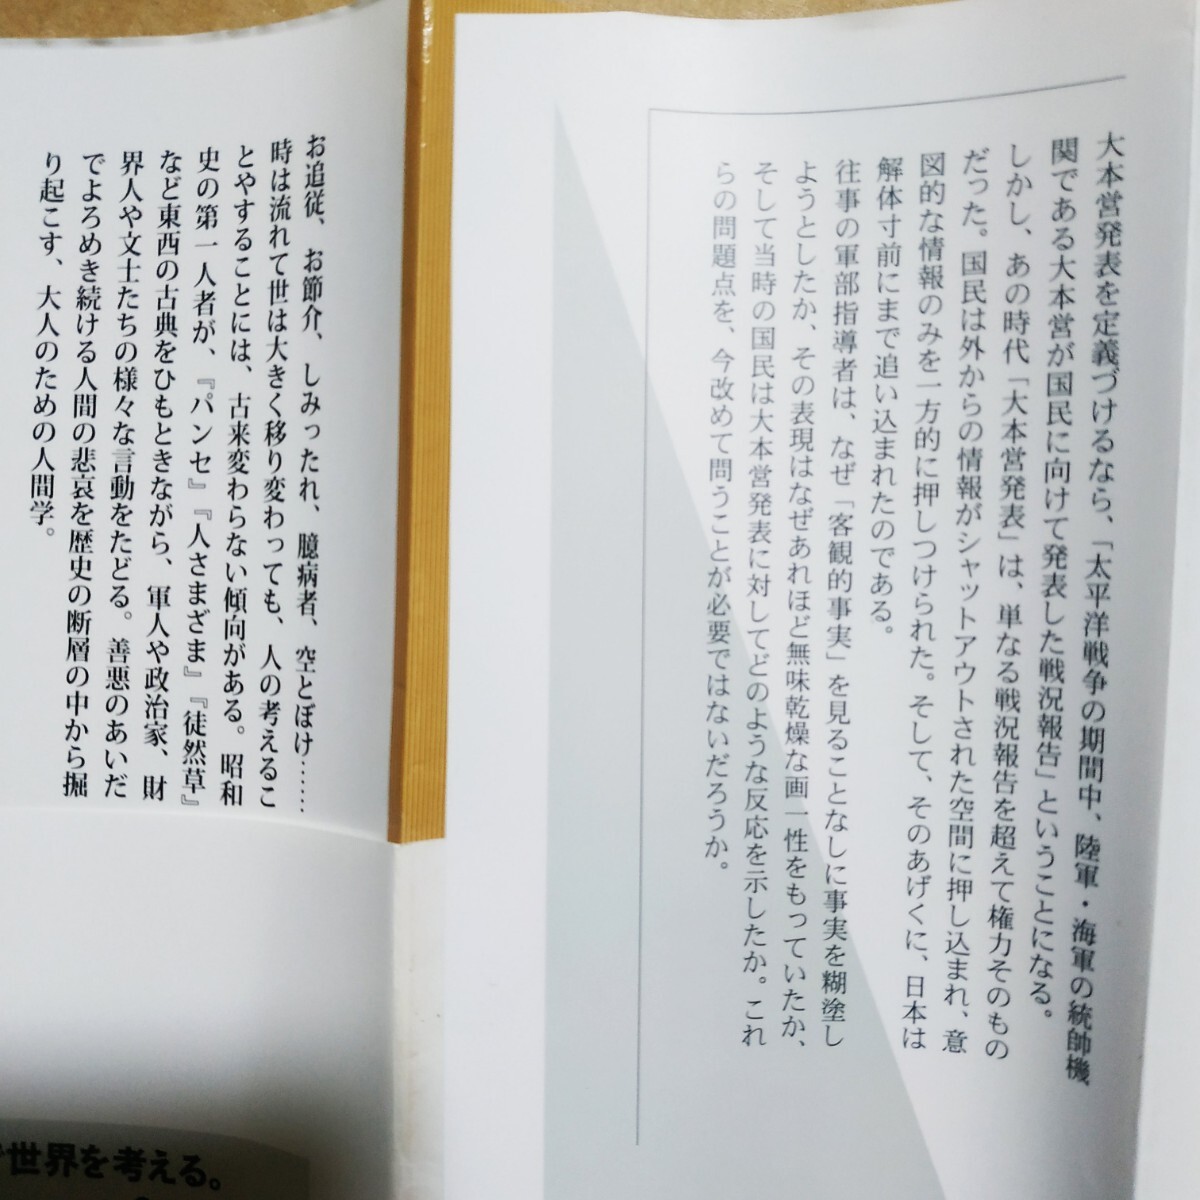 大本営発表を定義づけるなら、「太平洋戦争の期間中、陸軍・海軍の統帥機
関である大本営が国民に向けて発表した戦況報告」ということになる。
しかし、あの時代「大本営発表」は、単なる戦況報告を超えて権力そのもの
だった。国民は外からの情報がシャットアウトされた空間に押し込まれ、意
図的な情報のみを一方的に押しつけられた。そして、そのあげくに、日本は
解体寸前にまで追い込まれたのである。
往事の軍部指導者は、なぜ「客観的事実」を見ることなしに事実を糊塗し
ようとしたか、その表現はなぜあれほど無味乾燥な画一性をもっていたか、
そして当時の国民は大本営発表に対してどのような反応を示したか。これ
らの問題点を、今改めて問うことが必要ではないだろうか。
お追従、お節介、しみったれ、臆病者、空とぼけ……
時は流れて世は大きく移り変わっても、人の考えるこ
とやすることには、古来変わらない傾向がある。昭和
史の第一人者が、『パンセ』『人さまざま』『徒然草』
など東西の古典をひもときながら、軍人や政治家、財
界人や文士たちの様々な言動をたどる。善悪のあいだ
でよろめき続ける人間の悲哀を歴史の断層の中から掘
り起こす、大人のための人間学。
世界を考える。